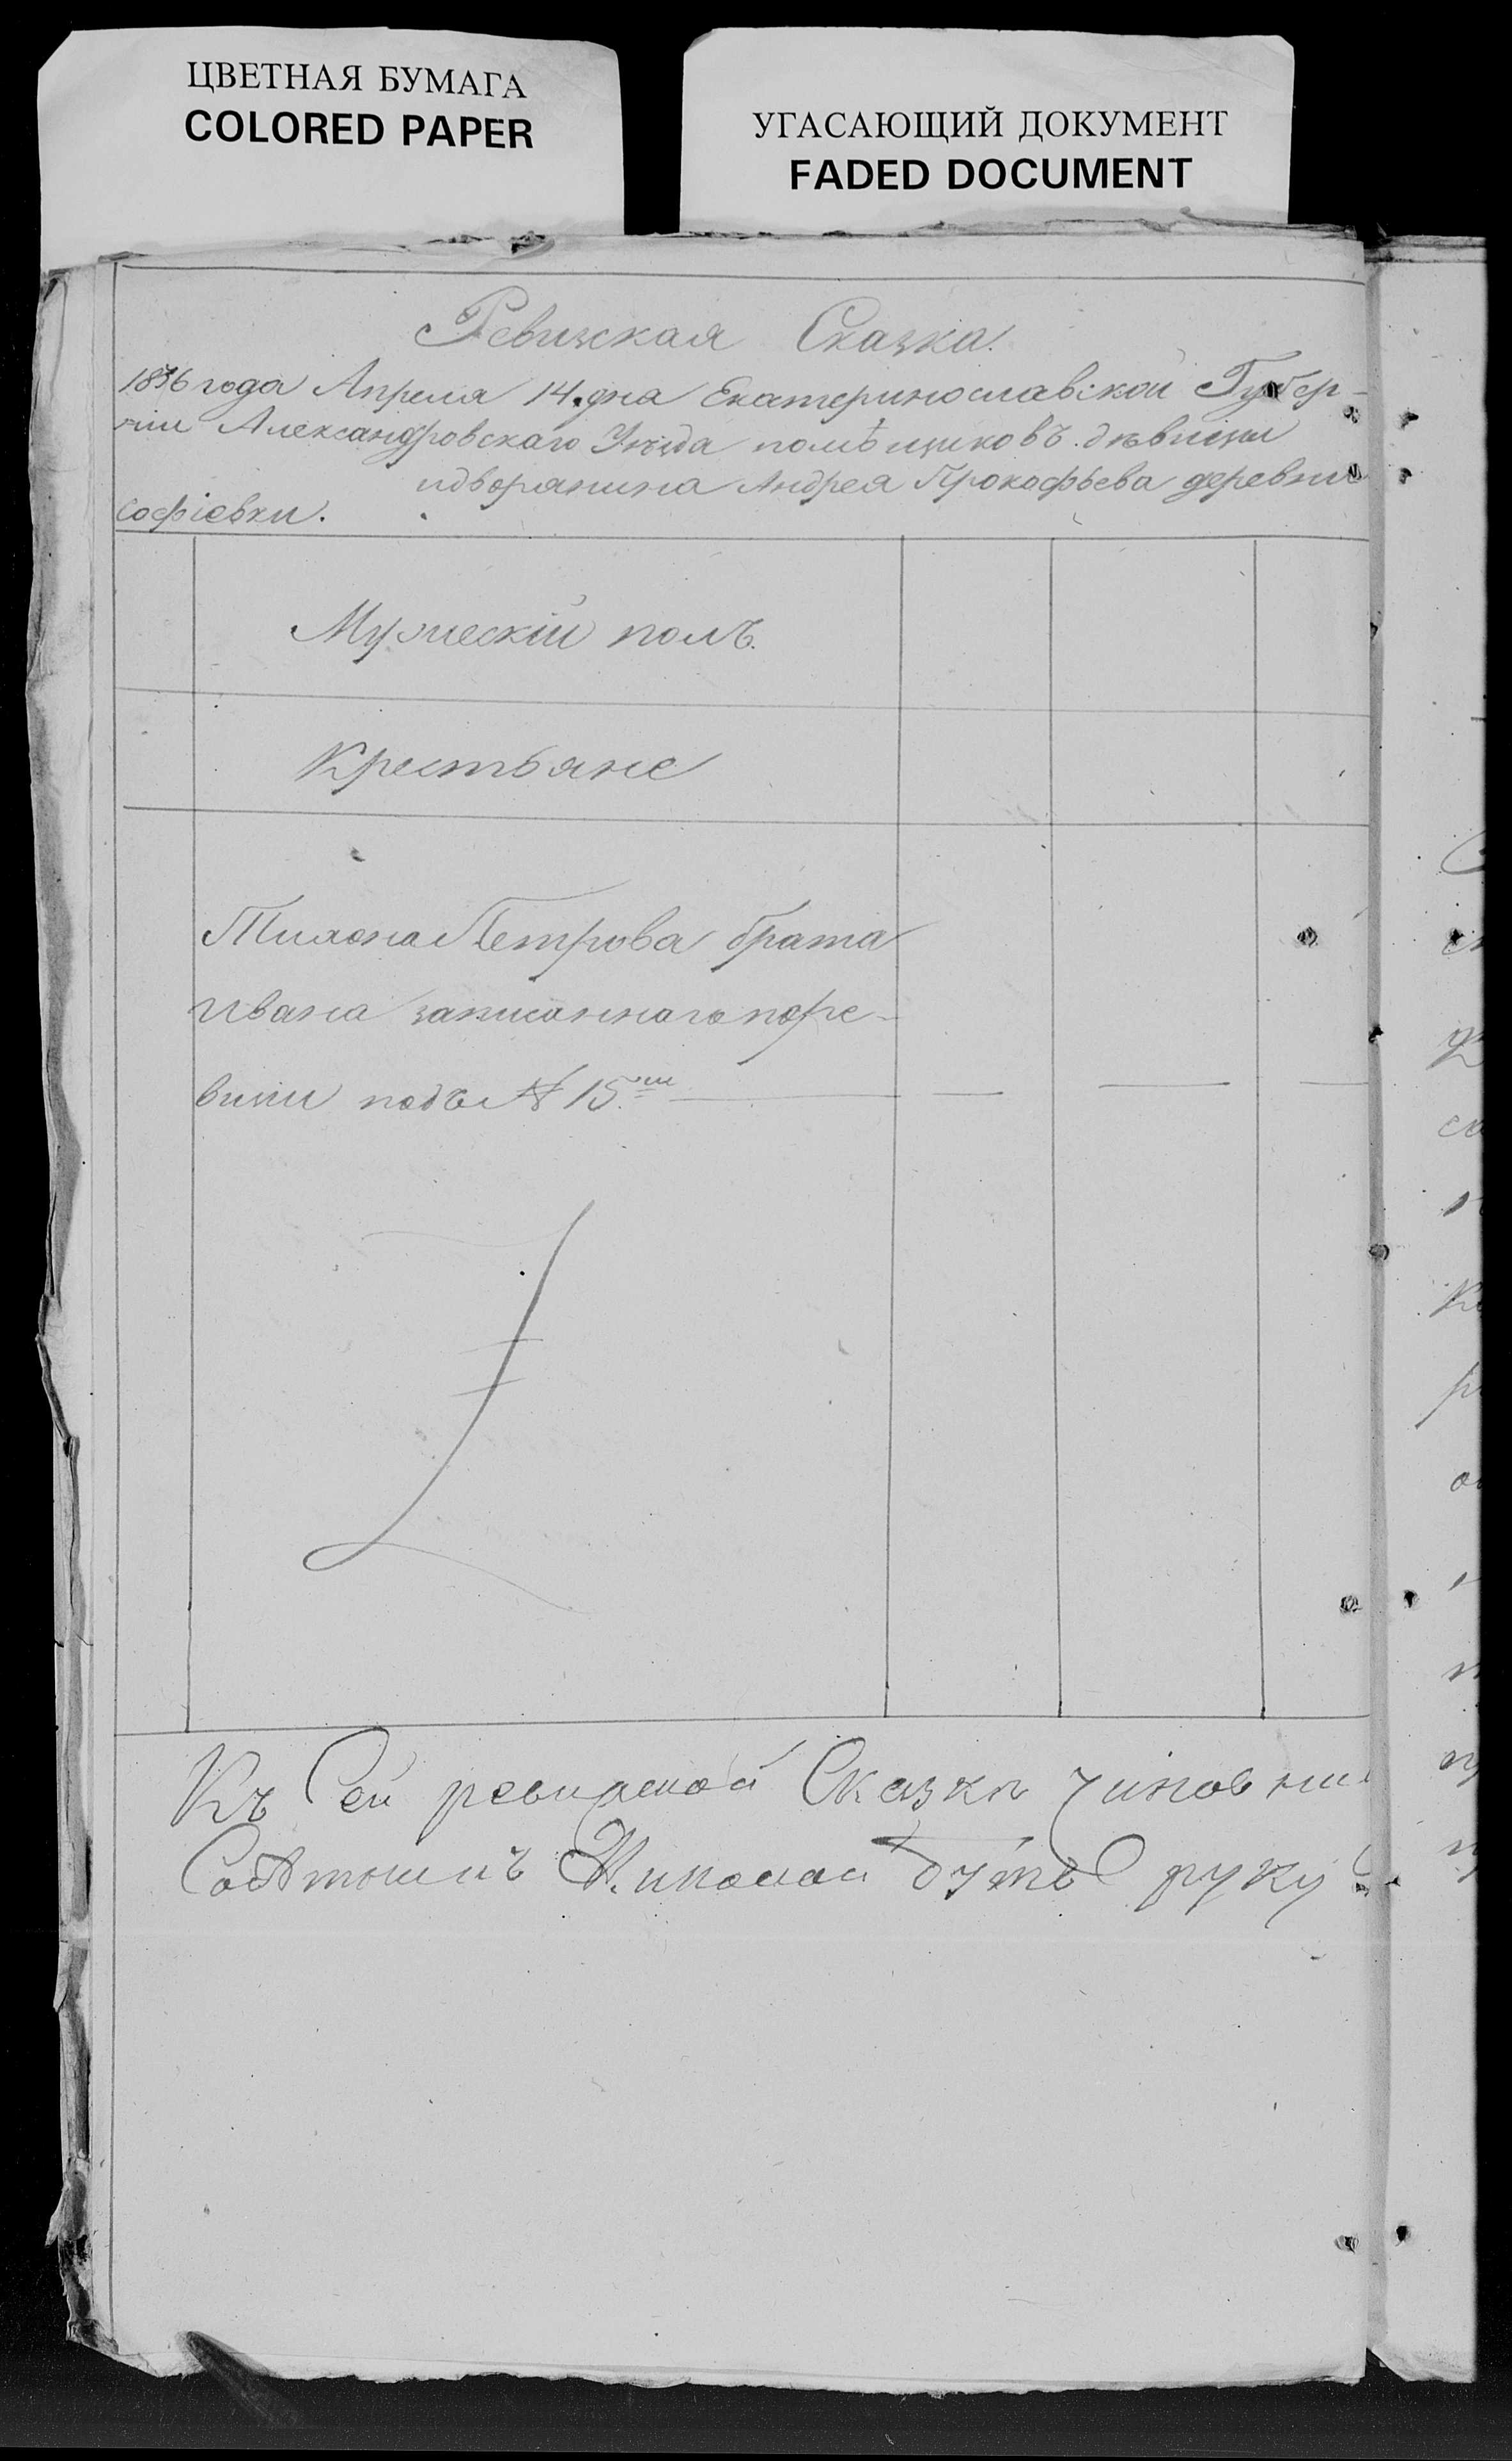 ЦВЕТНАЯ БУМАГА
COLORED PAPER
УГАСАЮЩИЙ ДОКУМЕНТ
FADED DOCUMENT
Ревизская Сказка.
1836 года Апреля 14. дня Екатеринославской Губер-
ніи Александровскаго Уѣзда помѣщиковъ. дѣвицы
идворянина Андрея Прокофьева деревни
Софіевки.
Мужескій полъ.
Крестьяне
Петрова брата
Ивана записаннаго поре-
визіи подъ № 15.
Къ Сей ревизской Сказкѣ
Николай руку